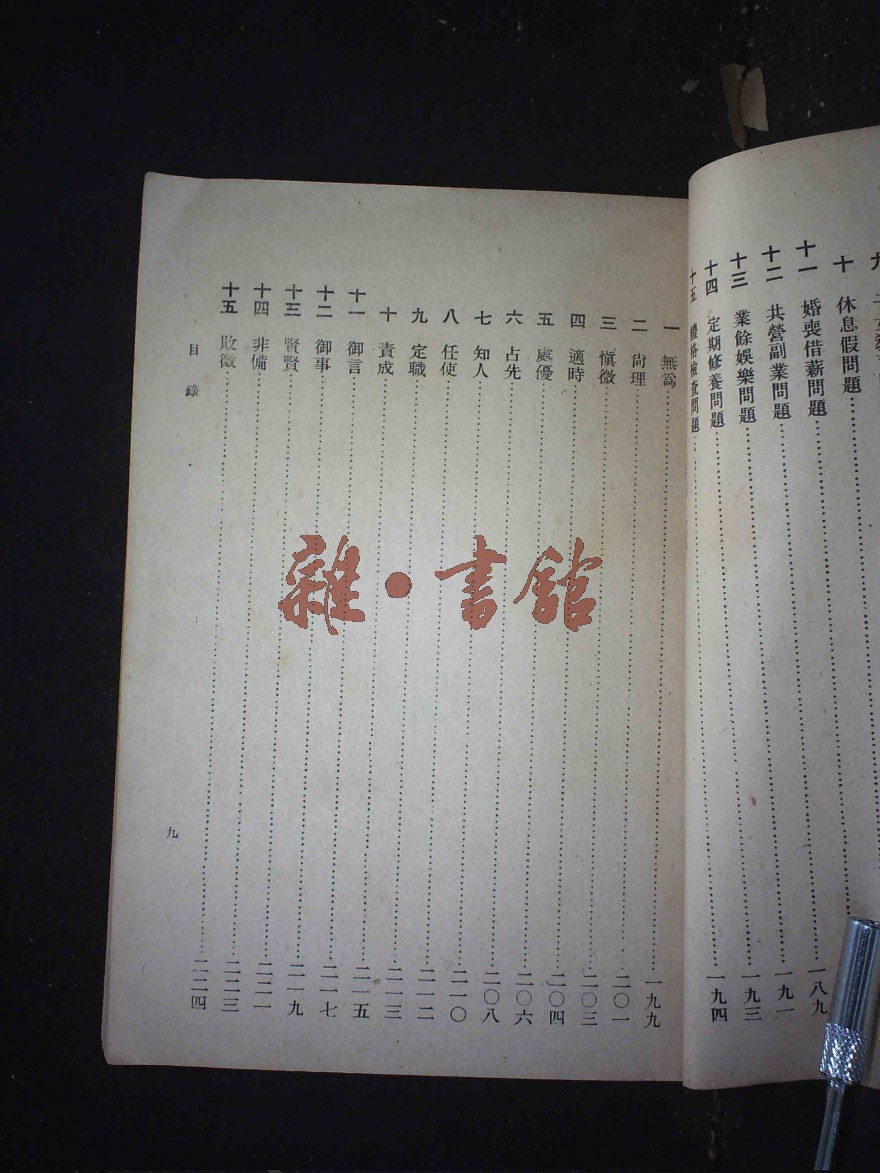 十 休息假問題
十一 婚喪借薪問題
十二 共營副業問題……一八九
十三 業餘娛樂問題……一九一
十四 定期修養問題……一九三
十五 體格檢查問題……一九四
一 無爲……一九九
二 尙理……二〇一
三 愼微……二〇三
四 適時……二〇四
五 處優……二〇六
六 占先……二〇八
七 知人……二一〇
八 任使……二一二
九 定職……二一三
十 責成……二一五
十一 御言……二一七
十二 御事……二一九
十三 賢賢……二二一
十四 非備……二二三
十五 敗徵……二二四
目錄
九
雜·書館